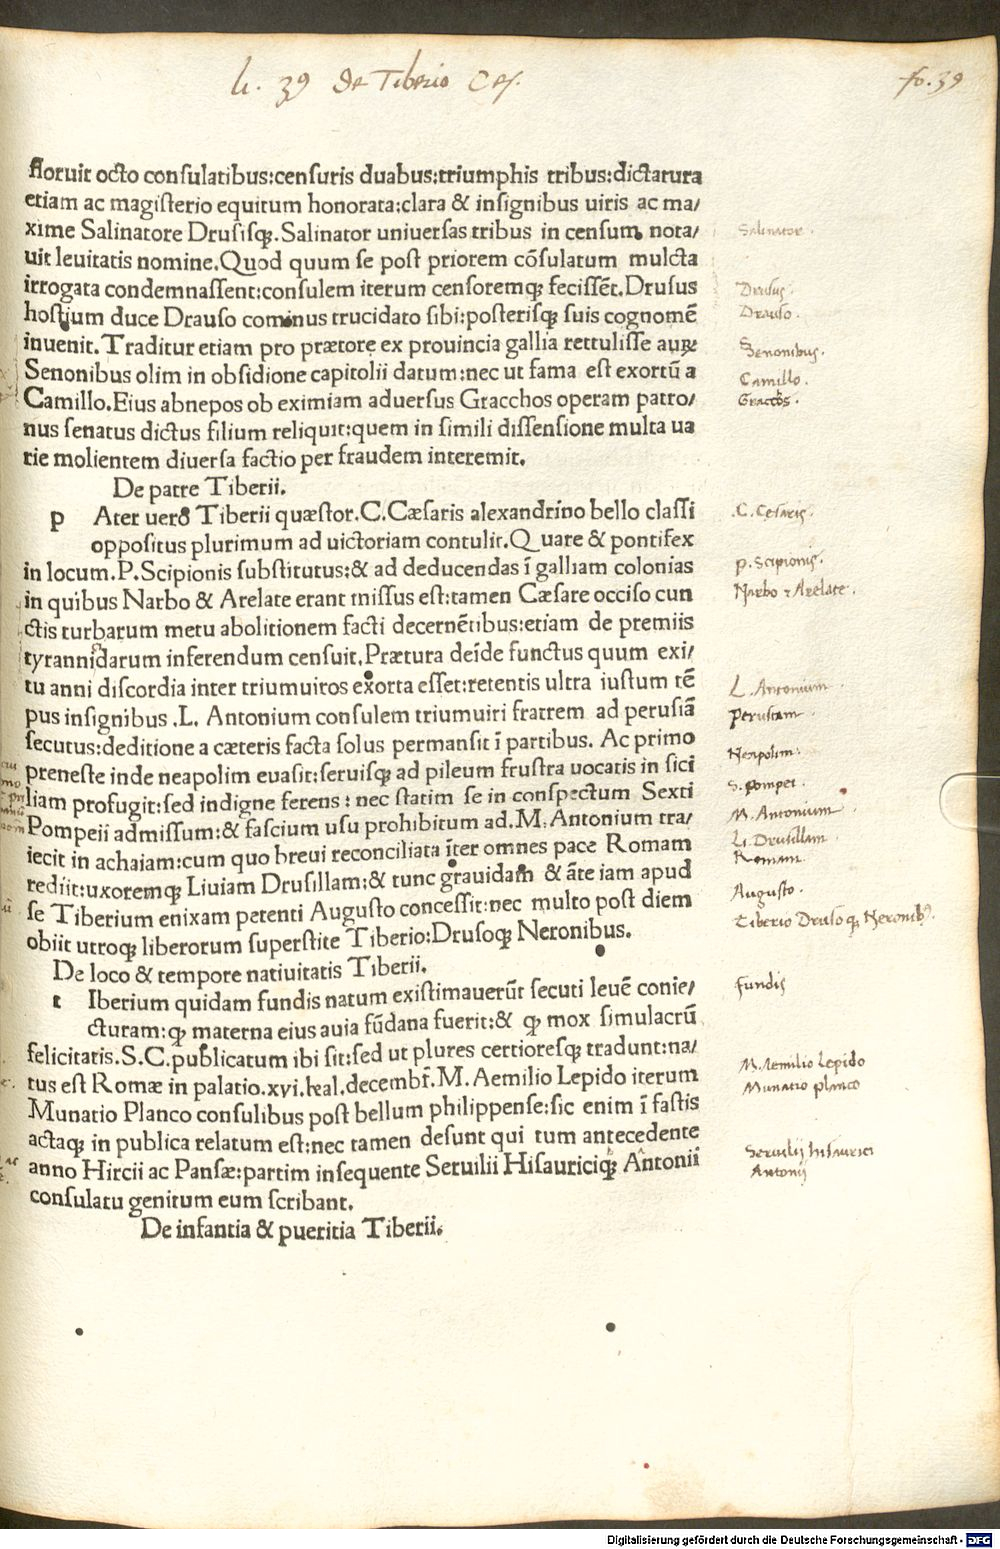 li. 39 de Tiberio Ces.
fo. 39
floruit octo conſulatibus:cenſuris duabus:triumphis tribus:dictatura
etiam ac magiſterio equitum honorata:clara & inſignibus uiris ac ma/
xime Salinatore Druſiſqꝫ.Salinator uniuerſas tribus in cenſum nota/
Salinator.
uit leuitatis nomine.Quod quum ſe poſt priorem cōſulatum mulcta
irrogata condemnaſſent:conſulem iterum cenſoremqꝫ feciſſēt.Druſus
Druſus.
hoſtium duce Drauſo cominus trucidato ſibi:poſteriſqꝫ ſuis cognomē
Drauſo.
inuenit.Traditur etiam pro prætore ex prouincia gallia rettuliſſe auꝝ
Senonibus.
Senonibus olim in obſidione capitolii datum:nec ut fama eſt exortū a
Camillo.
Camillo.Eius abnepos ob eximiam aduerſus Gracchos operam patro/
Gracchos.
nus ſenatus dictus filium reliquit:quem in ſimili diſſenſione multa ua
rie molientem diuerſa factio per fraudem interemit.
De patre Tiberii.
p Ater uero Tiberii quæſtor.C.Cæſaris alexandrino bello claſſi
.C.Ceſaris.
oppoſitus plurimum ad uictoriam contulit.Quare & pontifex
in locum.P.Scipionis ſubſtitutus:& ad deducendas ī galliam colonias
p.Scipionis.
in quibus Narbo & Arelate erant miſſus eſt:tamen Cæſare occiſo cun
Narbo & Arelate.
ctis turbarum metu abolitionem facti decernētibus:etiam de premiis
tyrannidarum inferendum cenſuit.Prætura deīde functus quum exi/
tu anni diſcordia inter triumuiros exorta eſſet:retentis ultra iuſtum tē
L.Antonium
pus inſignibus .L. Antonium conſulem triumuiri fratrem ad peruſiā
peruſiam
ſecutus:deditione a cæteris facta ſolus permanſit ī partibus. Ac primo
preneſte inde neapolim euaſit:ſeruiſqꝫ ad pileum fruſtra uocatis in ſici
Neapolim.
liam profugit:ſed indigne ferens: nec ſtatim ſe in conſpectum Sexti
S.pompei.
Pompeii admiſſum:& faſcium uſu prohibitum ad.M.Antonium tra/
M.Antonium
iecit in achaiam:cum quo breui reconciliata īter omnes pace Romam
Li.Druſillam
Romam
rediit:uxoremqꝫ Liuiam Druſillam:& tunc grauidam & āte iam apud
Auguſto.
ſe Tiberium enixam petenti Auguſto conceſſit:nec multo poſt diem
Tiberio Druſoqꝫ Neronibꝰ.
obiit utroqꝫ liberorum ſuperſtite Tiberio:Druſoqꝫ Neronibus.
De loco & tempore natiuitatis Tiberii.
t Iberium quidam fundis natum exiſtimauerūt ſecuti leuē conie/
fundis
cturam:qꝫ materna eius auia fūdana fuerit:& qꝫ mox ſimulacrū
felicitatis.S.C.publicatum ibi ſit:ſed ut plures certioreſqꝫ tradunt:na/
M.Aemilio Lepido
tus eſt Romæ in palatio.xvi.kal.decembr̄.M.Aemilio Lepido iterum
Munatio planco
Munatio Planco conſulibus poſt bellum philippenſe:ſic enim ī faſtis
actaqꝫ in publica relatum eſt:nec tamen deſunt qui tum antecedente
anno Hircii ac Panſæ:partim inſequente Seruilii Hiſauriciqꝫ Antonii
Seruilij hiſaurici
Antonij
conſulatu genitum eum ſcribant.
De infantia & pueritia Tiberii.
Digitalisierung gefördert durch die Deutsche Forschungsgemeinschaft - DFG